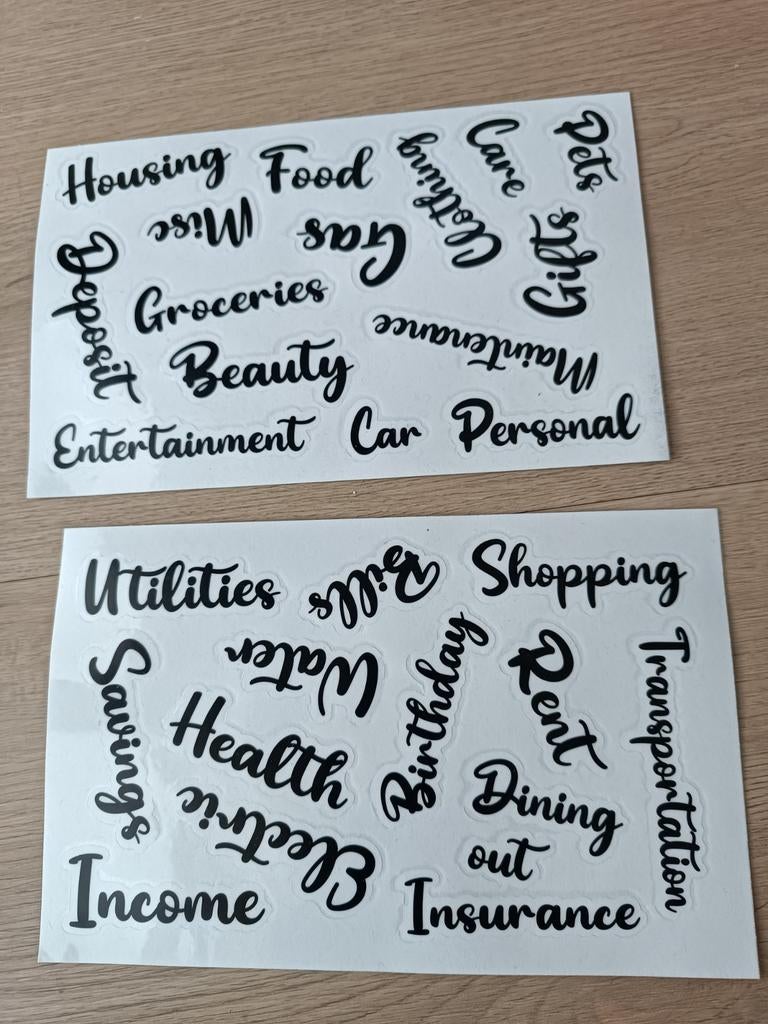 Housing
Food
Clothing
Care
Pets
Misc
Gas
Gifts
Deposit
Groceries
Maintenance
Beauty
Entertainment
Car
Personal
Utilities
Bills
Shopping
Savings
Water
Birthday
Rent
Transportation
Health
Electric
Dining
out
Income
Insurance